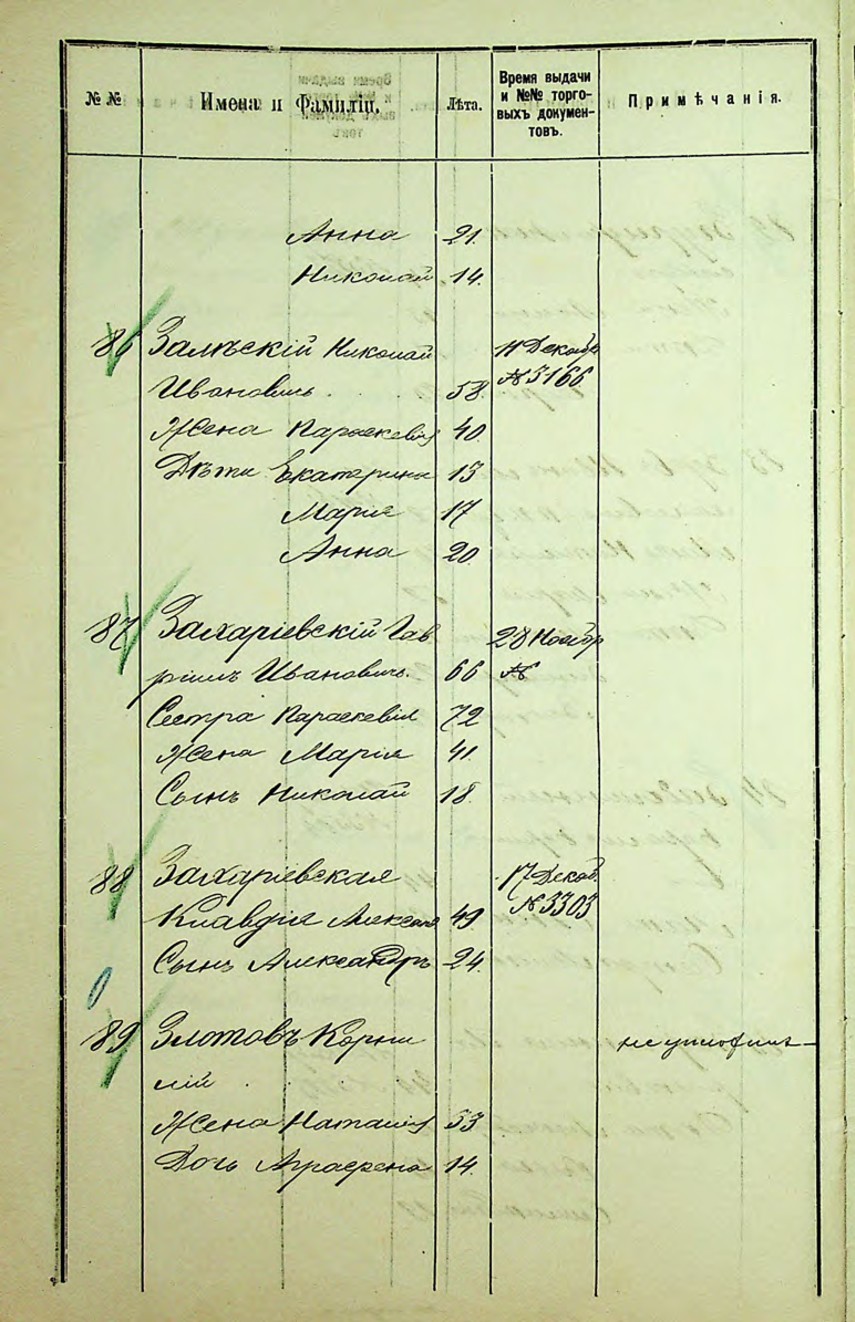 № №
Имена и Фамиліи.
Лѣта.
Время выдачи и №№ торговыхъ документовъ.
Примѣчанія.
Анна 21.
Николай 14.
86 Залѣскій Николай 11 Декабр
Ивановичъ 58. № 3166
Жена Параскевія 40.
Дѣти Екатерина 13
Марія 17
Анна 20.
87 Захаріевскій Гав 28 Ноябр
ріилъ Ивановичъ. 66 №
Сестра Параскевія 72
Жена Марія 41.
Сынъ Николай 18.
88 Захаріевская 17 Декаб.
Клавдія Алексан 49 № 3303
Сынъ Александръ 24.
89 Злотовъ Корни
лій
Жена Наталія 53
Дочь Аграфена 14.